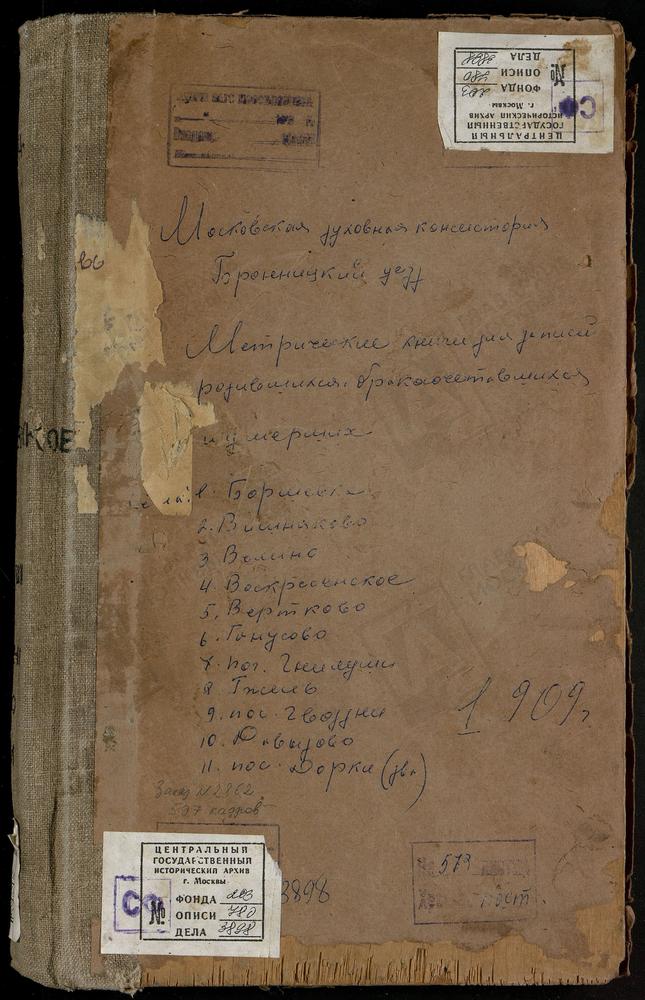 ЦЕНТРАЛЬНЫЙ
ГОСУДАРСТВЕННЫЙ
ИСТОРИЧЕСКИЙ АРХИВ
г. Москвы
№
ФОНДА 203
ОПИСИ 780
ДЕЛА 3898
СФ
Московская духовная консистория
Бронницкий уезд
Метрические книги для записи
родившихся, бракосочетавшихся
и умерших
1. Боршева
2. Вишняково
3. Велино
4. Воскресенское
5. Вертково
6. Ганусово
7. пог. Гнилуши
8. Гжель
9. пог. Гвоздни
10. Давыдово
11. пог. Дорки (два)
1909 г
Заказ № 2862
597 кадров
КОЕ
ЦЕНТРАЛЬНЫЙ
ГОСУДАРСТВЕННЫЙ
ИСТОРИЧЕСКИЙ АРХИВ
г. Москвы
СФ
№
ФОНДА 203
ОПИСИ 780
ДЕЛА 3898
3898
573